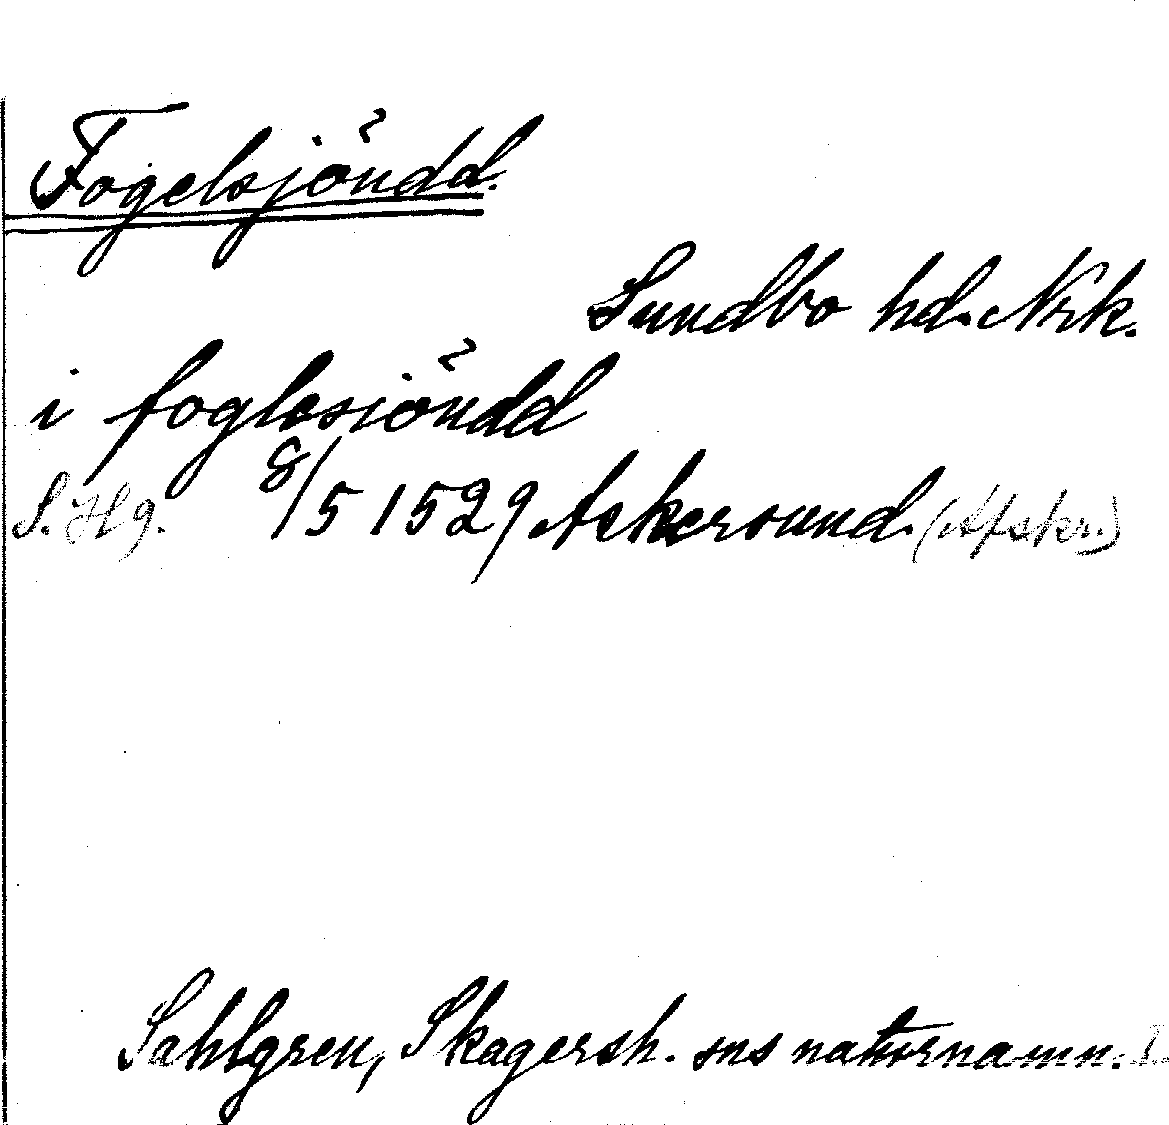 Fogelsjöndd.
Sundbo hd. Nrk.
i foglesiöndd
S. Hg. 8/5 1529 Askersund. (Afskr.)
Sahlgren, Skagersh. sns naturnamn. I.